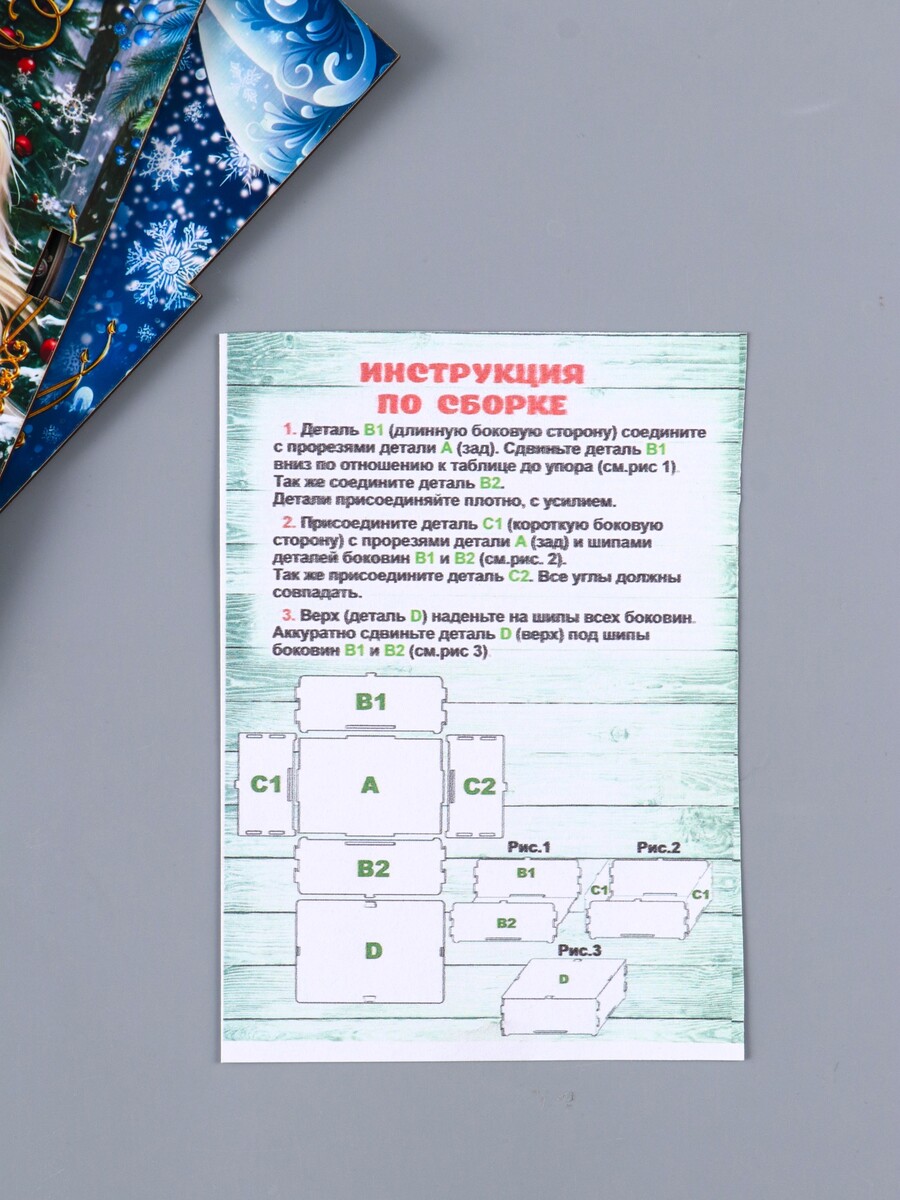 ИНСТРУКЦИЯ
ПО СБОРКЕ
1. Деталь B1 (длинную боковую сторону) соедините
с прорезями детали A (зад). Сдвиньте деталь B1
вниз по отношению к таблице до упора (см.рис 1).
Так же соедините деталь B2.
Детали присоединяйте плотно, с усилием.
2. Присоедините деталь C1 (короткую боковую
сторону) с прорезями детали A (зад) и шипами
деталей боковин B1 и B2 (см.рис. 2).
Так же присоедините деталь C2. Все углы должны
совпадать.
3. Верх (деталь D) наденьте на шипы всех боковин.
Аккуратно сдвиньте деталь D (верх) под шипы
боковин B1 и B2 (см.рис 3)
B1
C1
A
C2
B2
D
Рис.1
B1
B2
Рис.2
C1
C1
Рис.3
D